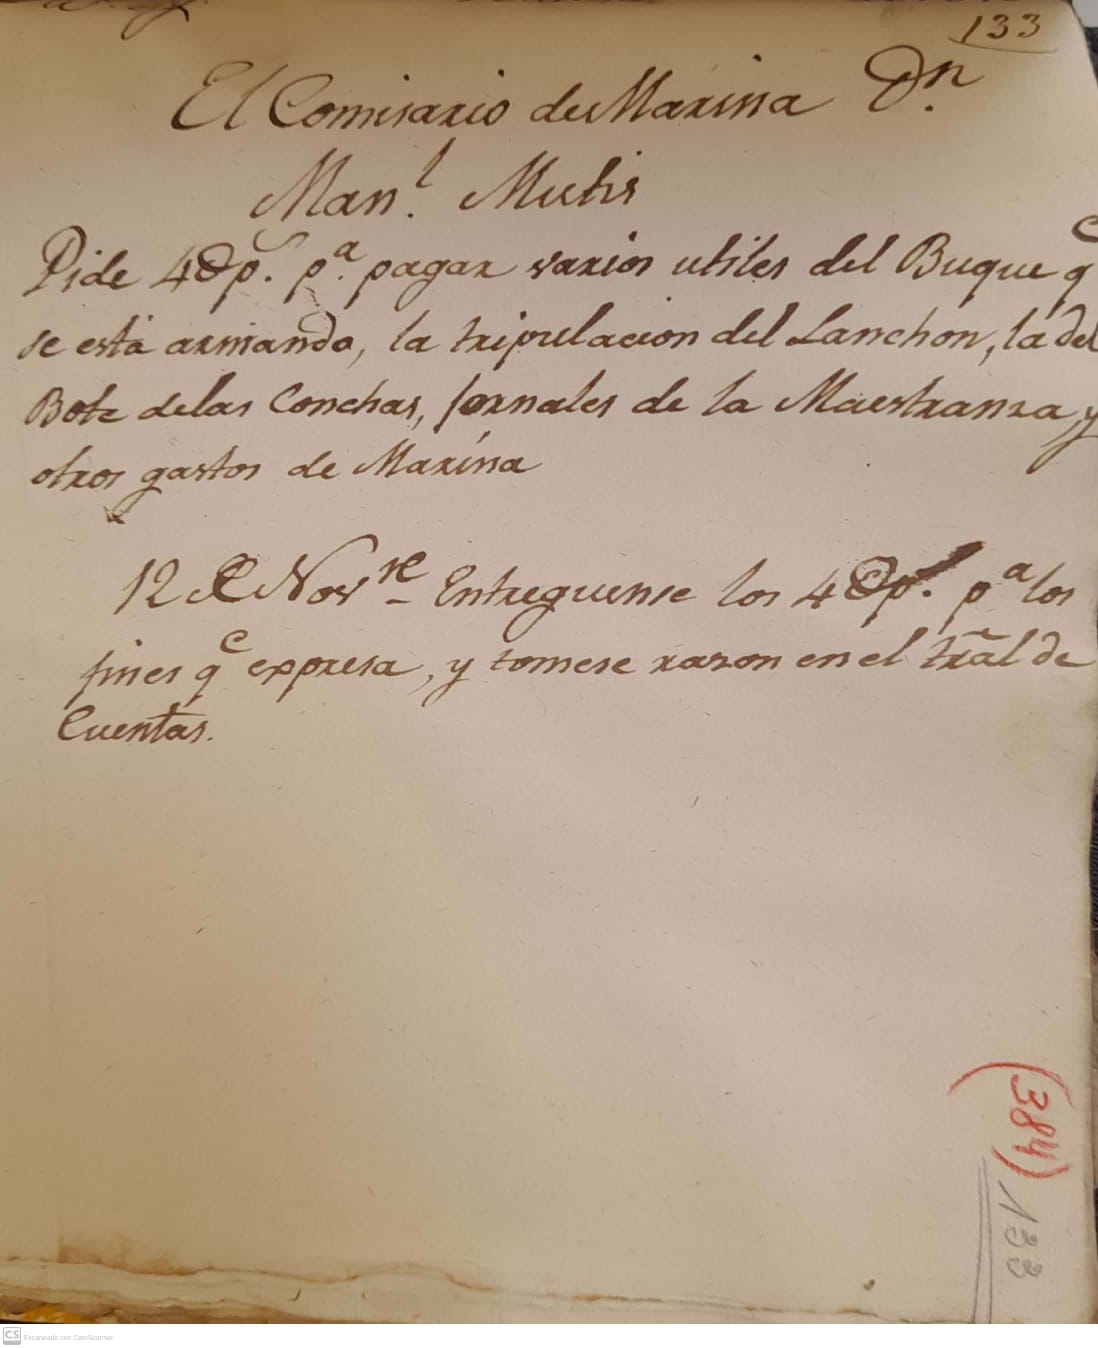 133
El Comisario de Marina Dn.
Man.l Mutis
Pide 4Dp. p.a pagar varios utiles del Buque qe
se està armando, la tripulacion del Lanchon, la del
Bote de las Conchas, Jornales de la Maestranza, y
otros gastos de Marina
12 de Novre Entreguense los 4Dp. pa los
fines qe expresa, y tomese razon en el tral de
Cuentas.
(384)
133
CS Escaneado con CamScanner